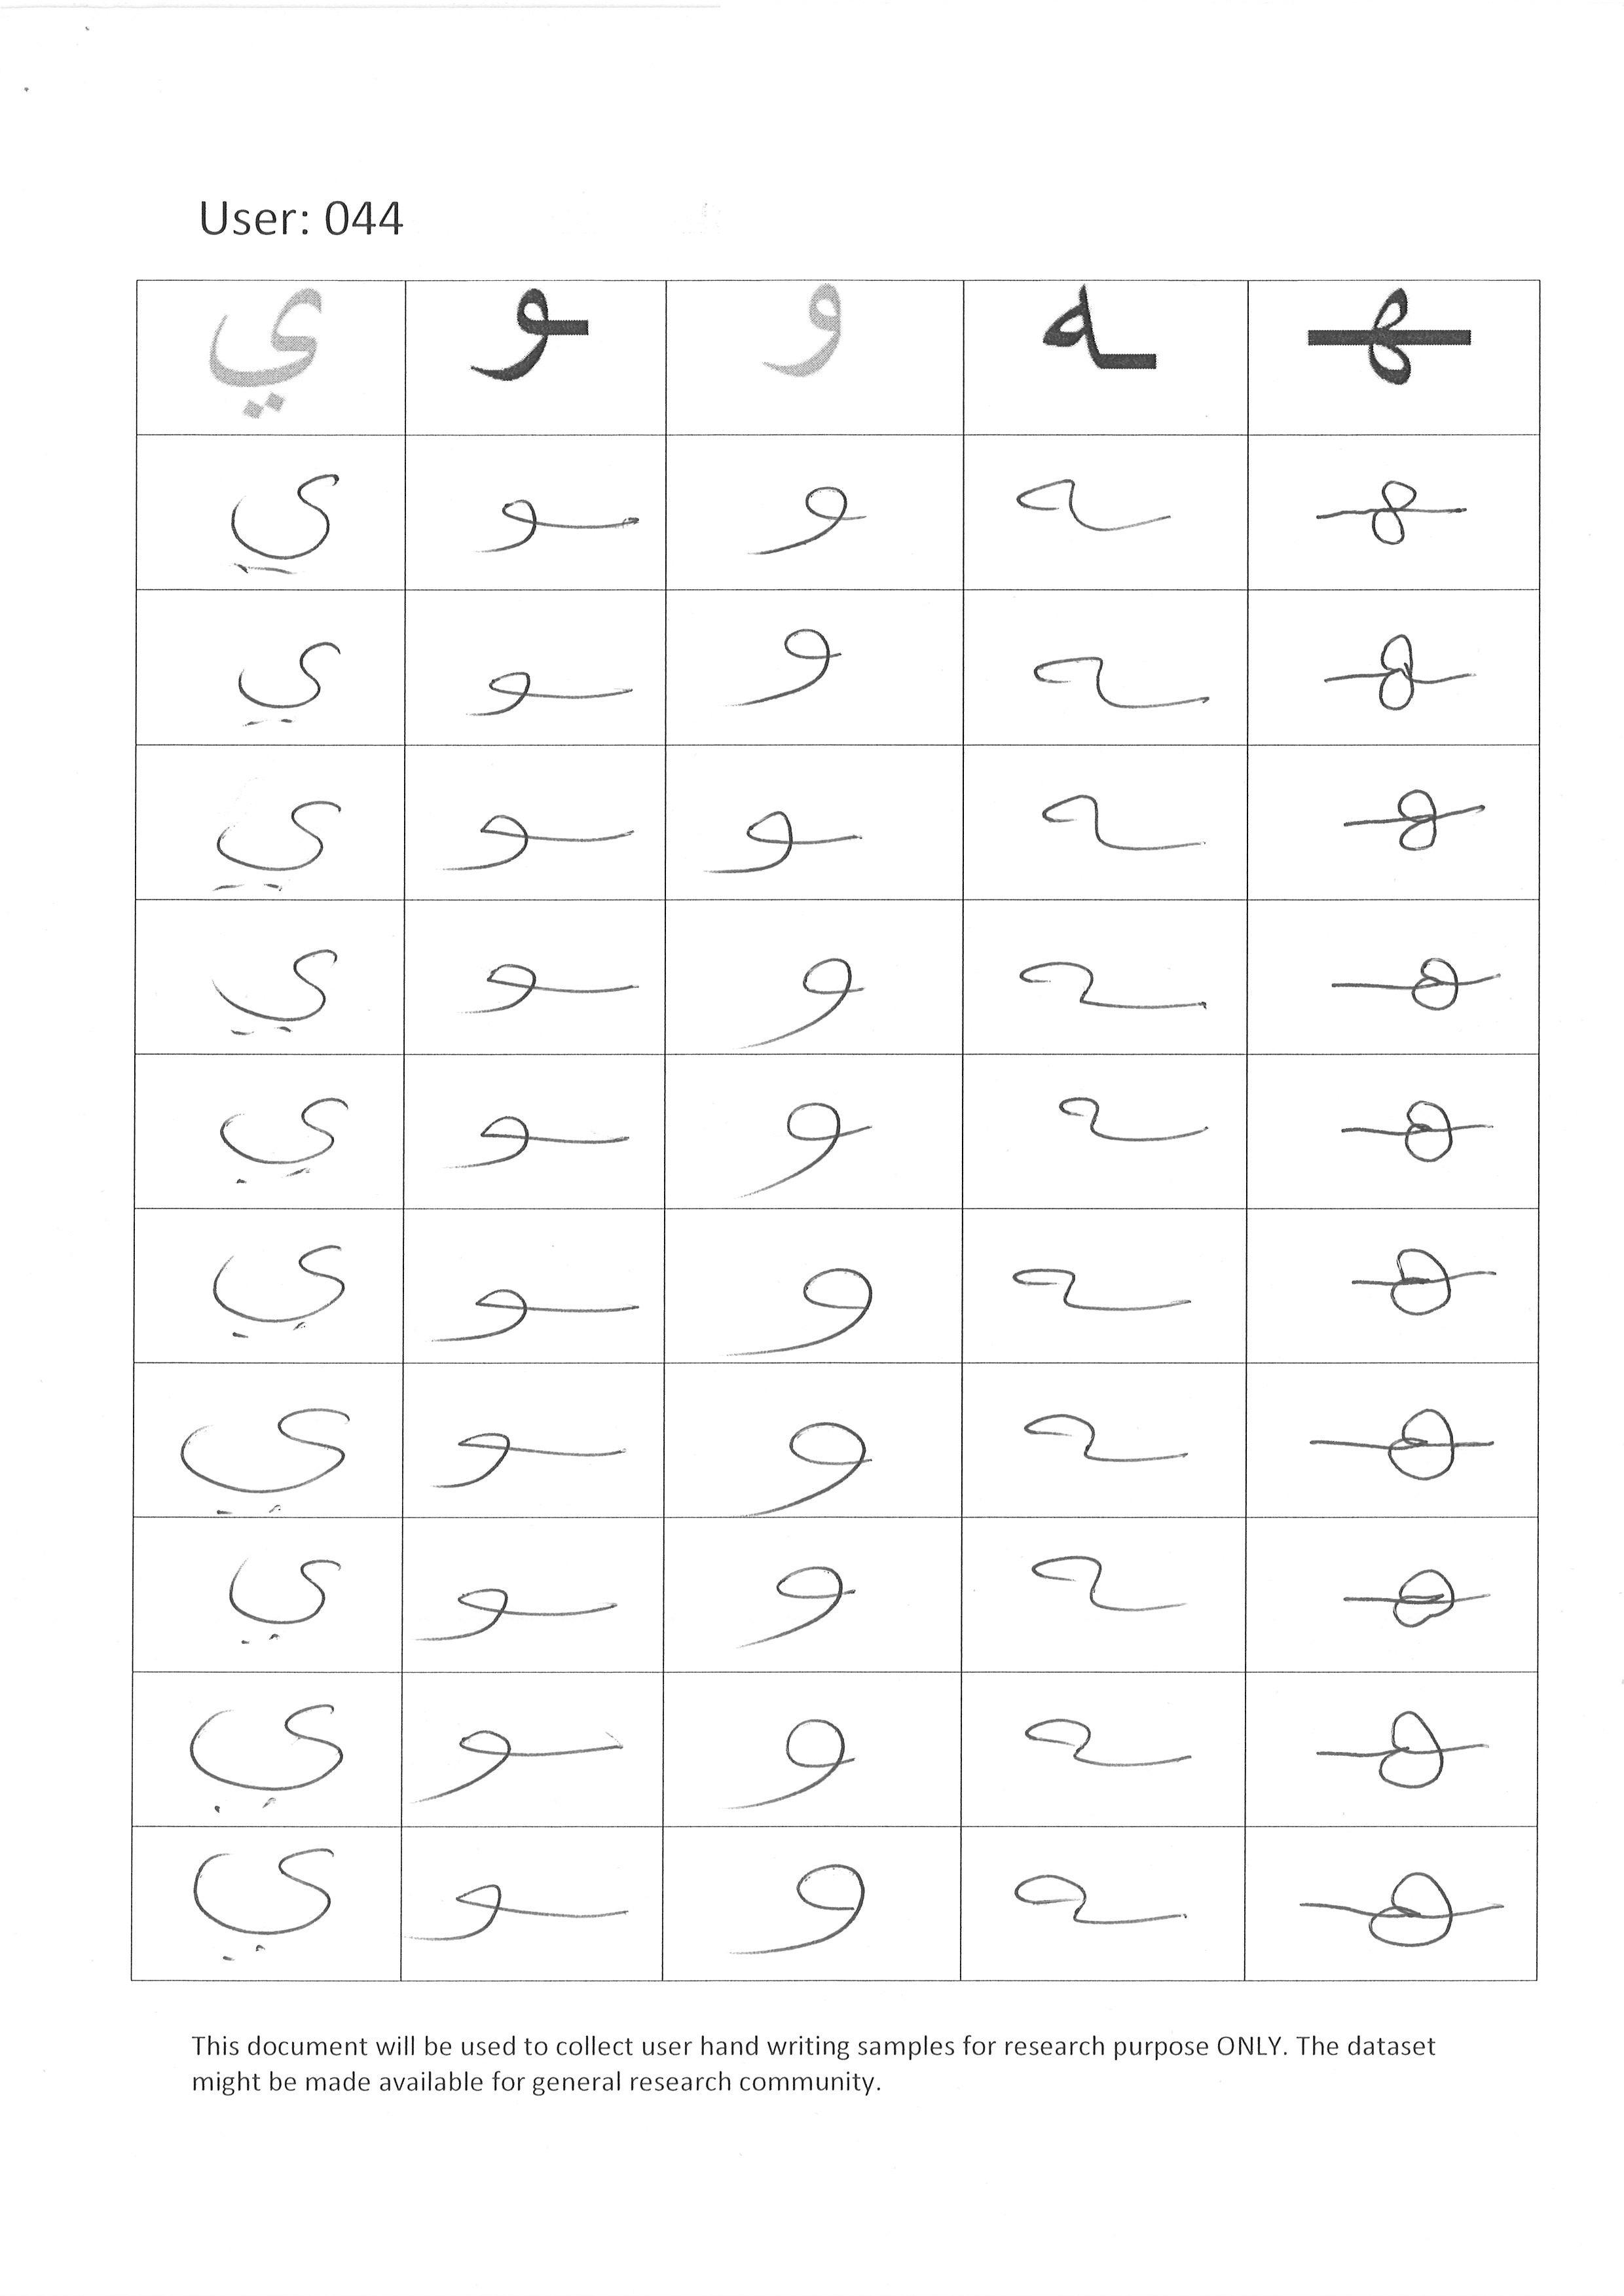 User: 044
ي ـو و ـه ـهـ
ي ـو و ـه ـهـ
ي ـو و ـه ـهـ
ي ـو و ـه ـهـ
ي ـو و ـه ـهـ
ي ـو و ـه ـهـ
ي ـو و ـه ـهـ
ي ـو و ـه ـهـ
ي ـو و ـه ـهـ
ي ـو و ـه ـهـ
ي ـو و ـه ـهـ
This document will be used to collect user hand writing samples for research purpose ONLY. The dataset
might be made available for general research community.